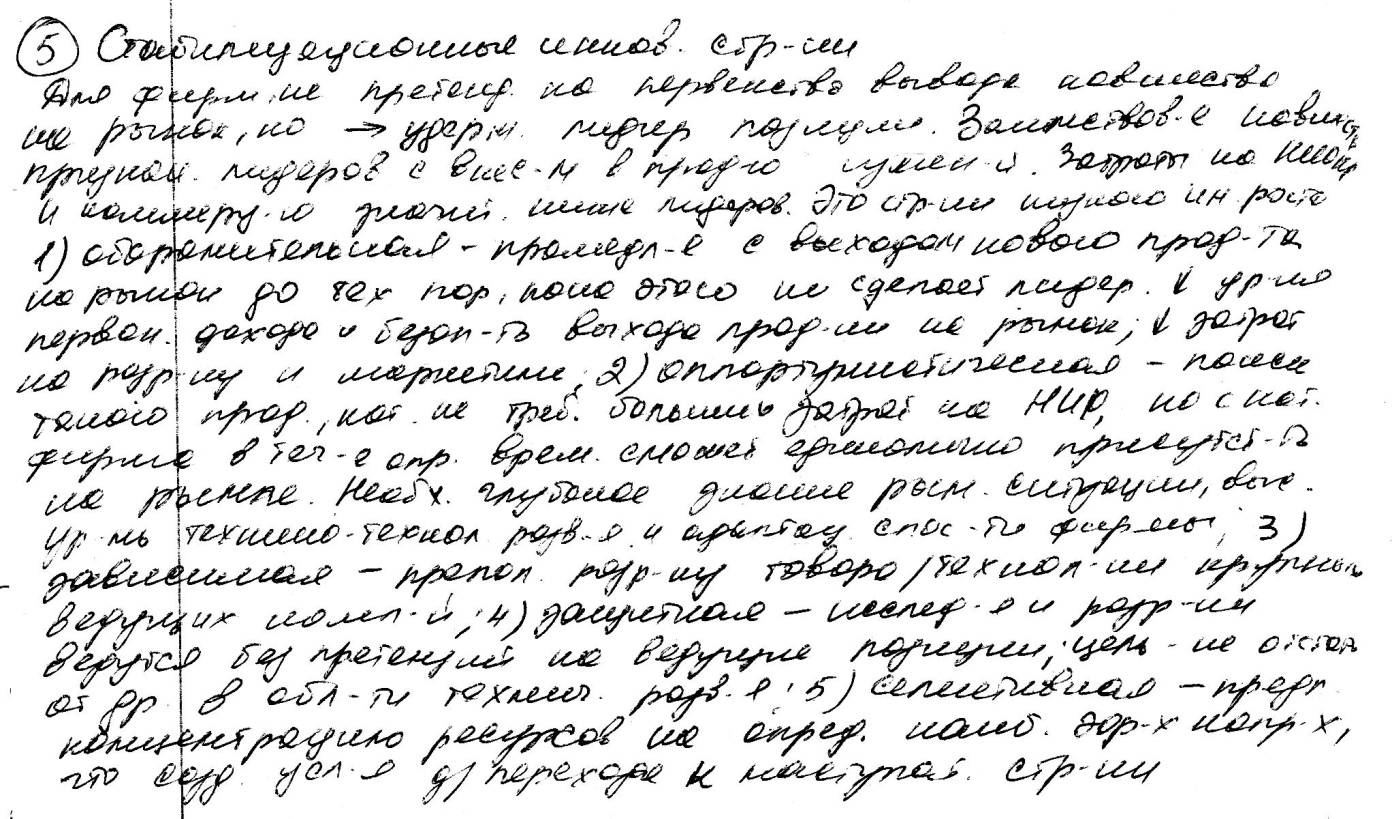 5 Стабилизационные иннов. стр-ии
Для фирм, не претенд. на первенство вывода новшества
на рынок, но → удерж. лидер позиции. Заимствов-е новшеств
признан. лидеров с внес-м в прод-ю измен-й. Затраты на НИОКР
и коммерц-ю значит. ниже лидеров. Это стр-ии низкого ин роста
1) оборонительная - промедл-е с выходом нового прод-та
на рынок до тех пор, пока этого не сделает лидер. ↓ ур-ня
первон. дохода и безоп-ть выхода прод-ии на рынок; ↓ затрат
на разр-ку и маркетинг; 2) оппортунистическая - поиск
такого прод., кот. не треб. больших затрат на НИР, но с кот.
фирма в теч-е опр. врем. сможет единолично присутст-ть
на рынке. Необх. глубокое знание рын. ситуации, выс.
ур-нь технико-технол. разв-я и адаптац. спос-ти фирмы; 3)
зависимая - разр-ку товара/технол-ии крупных
ведущих комп-й; 4) защитная - исслед-я и разр-ки
ведутся без претензий на ведущие позиции; цель - не отстать
от др. в обл-ти технич. разв-я; 5) селективная - предп.
концентрацию ресурсов на опред. наиб. эф-х напр-х,
что созд. усл-я д/перехода к наступат. стр-ии